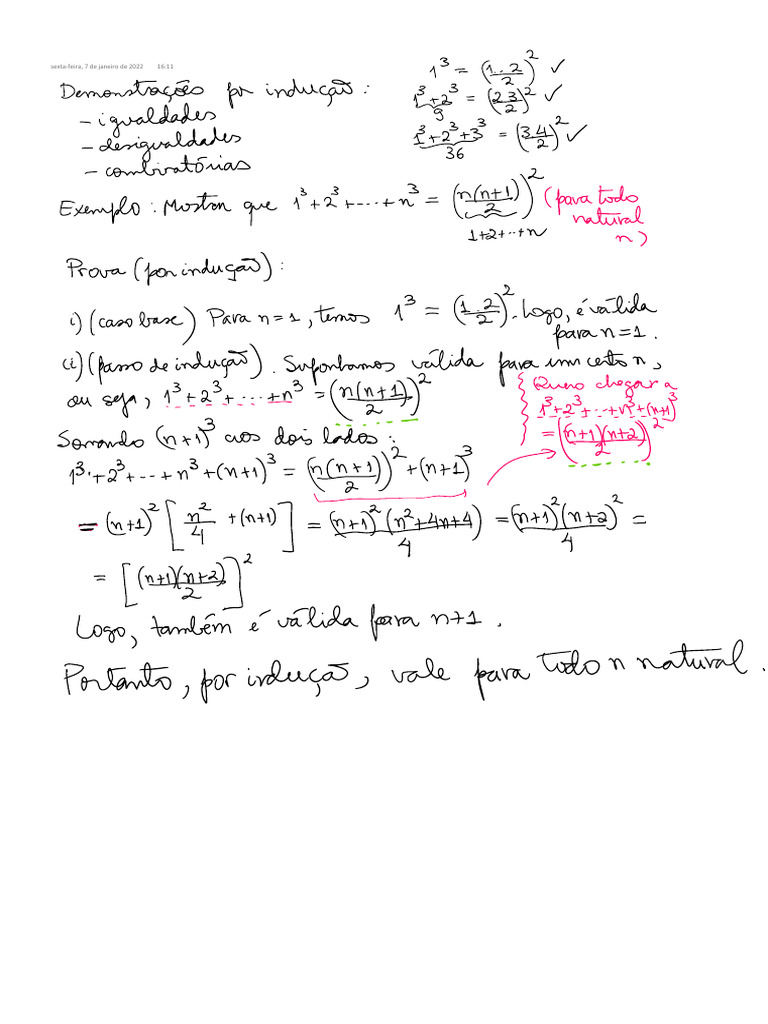 sexta-feira, 7 de janeiro de 2022 16:11
Demonstrações por indução:
- igualdades
- desigualdades
- combinatórias
1³ = (1·2/2)² ✓
1³+2³ = (2·3/2)² ✓
9
1³+2³+3³ = (3·4/2)² ✓
36
Exemplo: Mostrar que 1³+2³+···+n³ = (n(n+1)/2)² (para todo
natural
n)
1+2+···+n
Prova (por indução):
i) (caso base) Para n=1, temos 1³ = (1·2/2)². Logo, é válida
para n=1.
ii) (passo de indução). Suponhamos válida para um certo n,
ou seja, 1³+2³+···+n³ = (n(n+1)/2)²
Quero chegar a
1³+2³+···+n³+(n+1)³
= ((n+1)(n+2)/2)²
Somando (n+1)³ aos dois lados:
1³+2³+···+n³+(n+1)³ = (n(n+1)/2)² + (n+1)³
= (n+1)² [n²/4 + (n+1)] = (n+1)²(n²+4n+4)/4 = (n+1)²(n+2)²/4 =
= [(n+1)(n+2)/2]²
Logo, também é válida para n+1.
Portanto, por indução, vale para todo n natural.